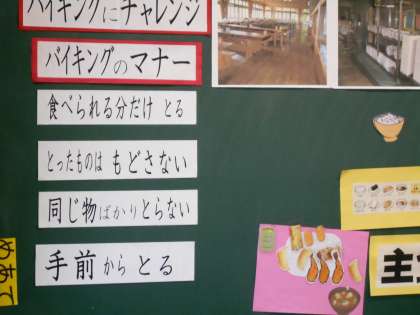 バイキングにチャレンジ
バイキングのマナー
食べられる分だけ とる
とったものは もどさない
同じ物ばかりとらない
手前から とる
めあて
主